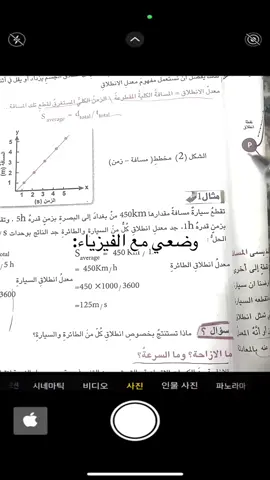 معدل الانطلاق = المسافة الكلية المقطوعة \ الزمن الكلي المستغرق لقطع تلك المسافة
S average = d total / t total
الزمن (s)
الشكل (2) مخطط( مسافة - زمن)
مثال1
تقطع سيارة مسافة مقدارها 450km من بغداد إلى البصرة بزمن قدره 5h
بزمن قدره 1h، جد معدل انطلاق كل من السيارة والطائرة جد الناتج بوحدات
الحل
وضعي مع الفيزياء:
معدل انطلاق الطائرة
= 450Km/h
معدل انطلاق السيارة
=450 ×1000/3600
=125m/s
سؤال ؟ ماذا تستنتج بخصوص انطلاق كل من الطائرة والسيارة؟
ما الازاحة؟ وما السرعة؟
시네마틱 비디오 사진 인물 사진 파노라마